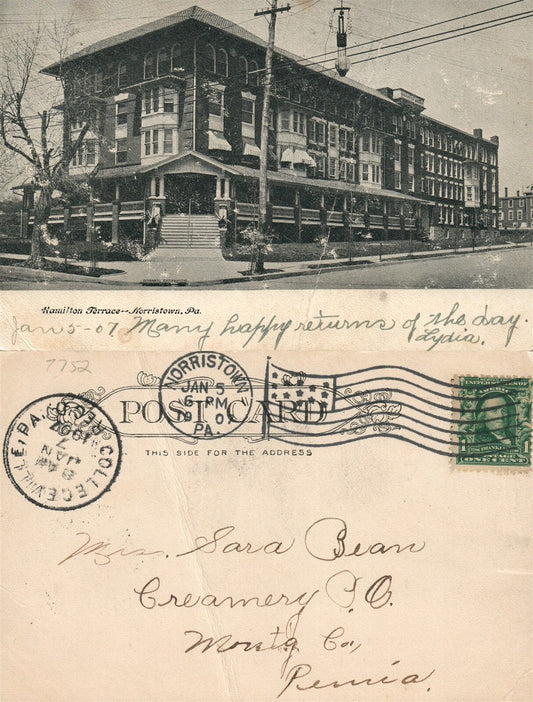 Hamilton Terrace--Norristown, Pa.
Jan 5-07 Many happy returns of the day.
Lydia.
7752
NORRISTOWN
JAN 5
6-PM
1907
PA.
POST CARD
THIS SIDE FOR THE ADDRESS
UNITED STATES OF AMERICA
FRANKLIN
1 POSTAGE 1
ONE CENT
COLLEGEVILLE, PA. REC'D
JAN
7
8 AM
1907
Miss. Sara Bean
Creamery P.O.
Montg Co,
Penna.